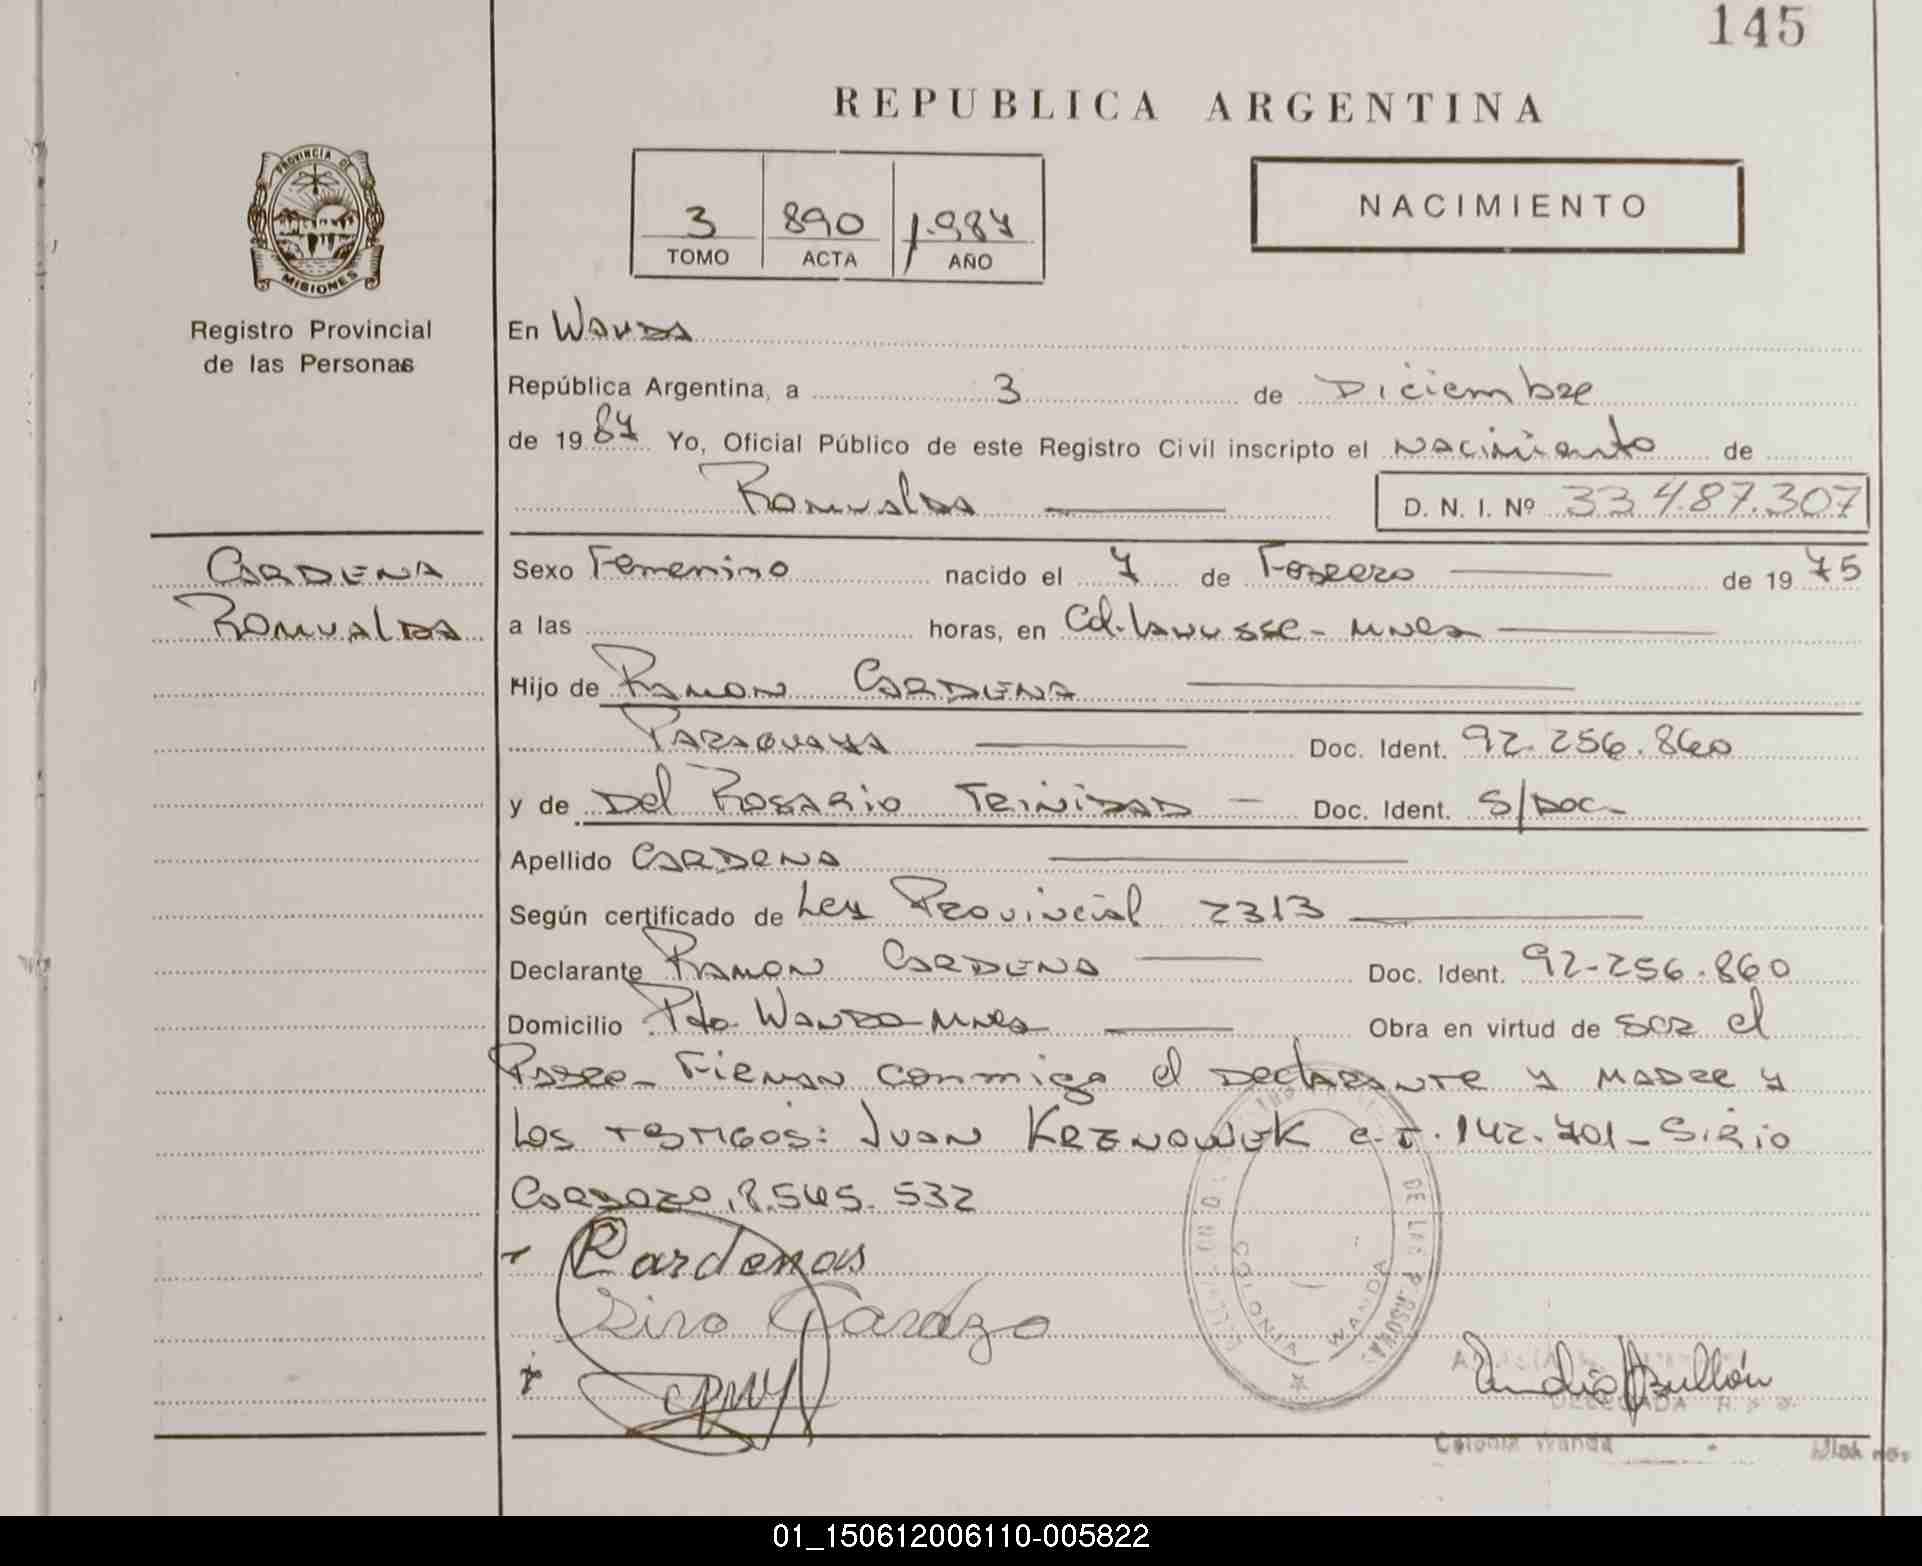 145
REPUBLICA ARGENTINA
PROVINCIA DE
MISIONES
Registro Provincial
de las Personas
3 890 1.987
TOMO ACTA AÑO
NACIMIENTO
En Wanda
República Argentina, a 3 de Diciembre
de 1987 Yo, Oficial Público de este Registro Civil inscripto el nacimiento de
Romualda
D. N. I. Nº 33.487.307
CARDENA
Romualda
Sexo Femenino nacido el 7 de Febrero de 1975
a las horas, en Cd. Lanusse - Mnes
Hijo de Ramon CARDENA
Paraguaya Doc. Ident. 92.256.860
y de Del Rosario Trinidad - Doc. Ident. S/Doc-
Apellido CARDENA
Según certificado de Ley Provincial 2313
Declarante Ramon CARDENA Doc. Ident. 92-256.860
Domicilio Pto. Wanda-Mnes Obra en virtud de ser el
Padre- Firman conmigo el declarante y madre y
los testigos: Juan c.I. 142.701- Sirio
Cardozo, 8.545.532
Cardenas
Siro Cardozo
DE LAS PERSONAS
COLONIA WANDA
DELEGADA
Colonia Wanda
01_150612006110-005822